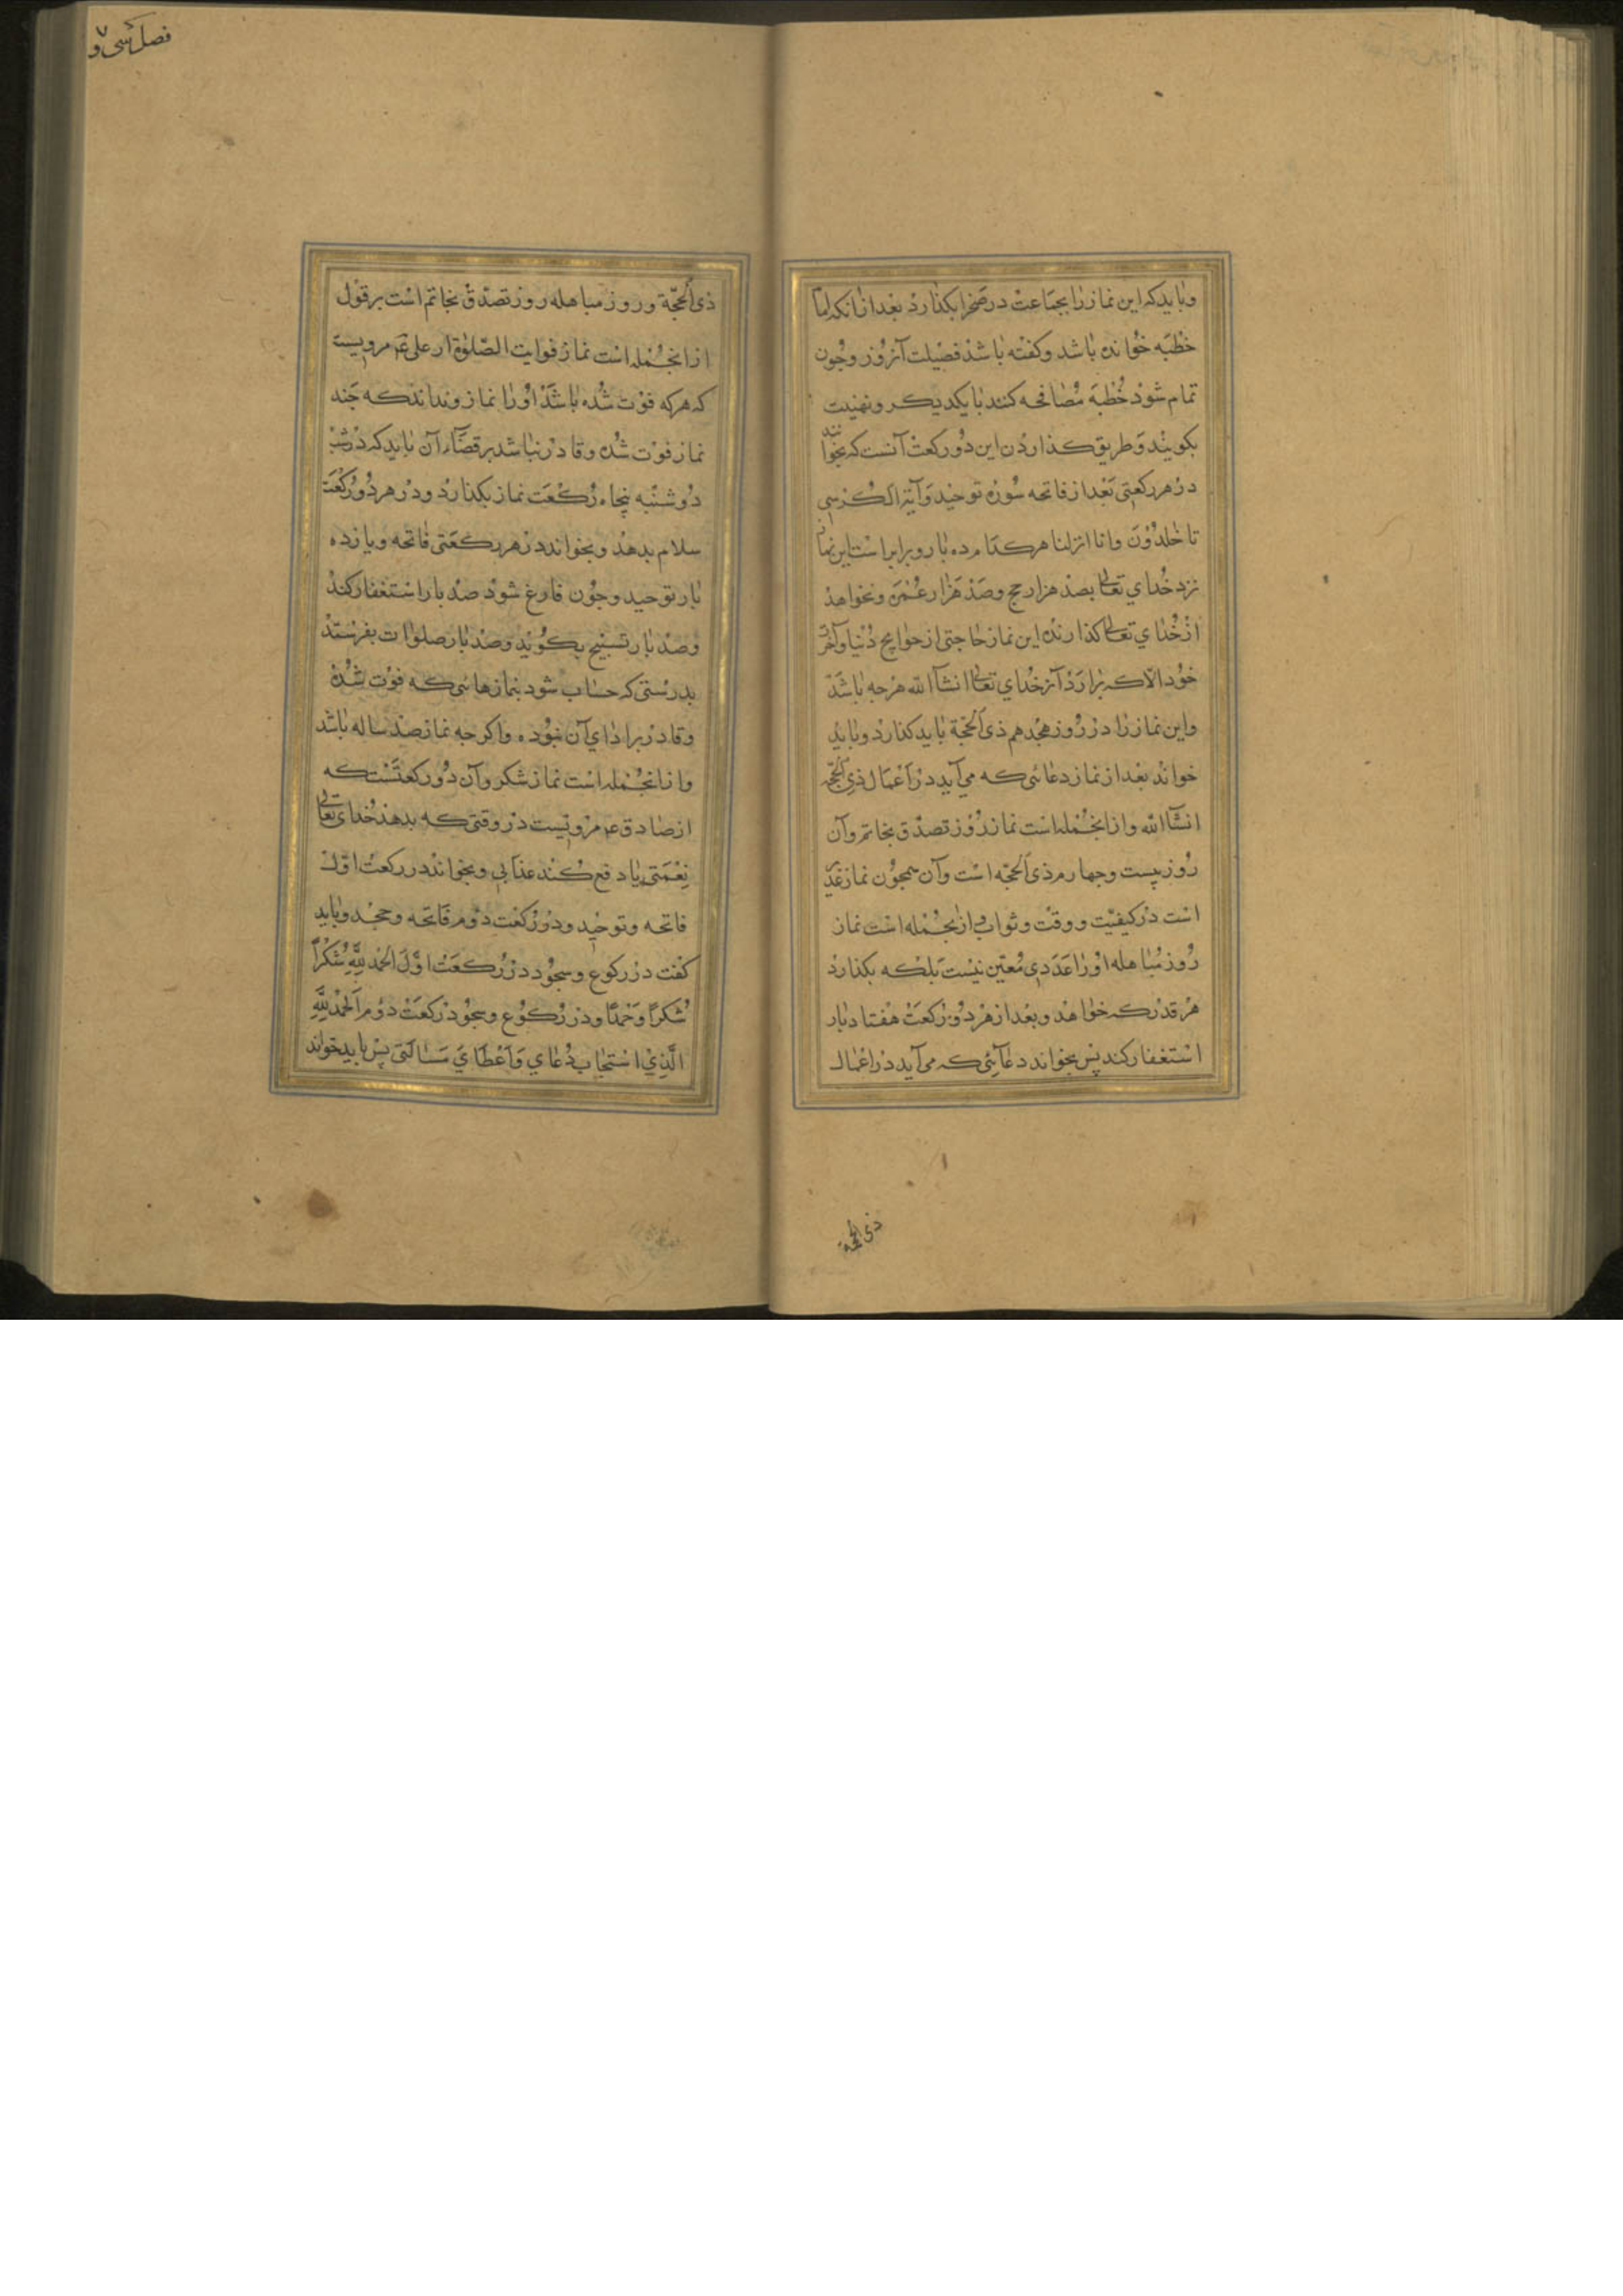 وباید که این نماز را بجماعت در صحرا بکذارد بعد از انکه امام
خطبه خوانده باشد و کفته باشد فضیلت آنروز و چون
تمام شود خطبه مصافحه کنند با یکدیکر و تهنیت
بکویند و طریق کذاردن این دو رکعت آنست که بخواند
در هر رکعتی بعد از فاتحه سوره توحید و آیة الکرسی
تا خلدون و انا انزلنا هر کدام ده بار و برابر است این نماز
نزد خدای تعالی بصد هزار حج و صد هزار عمره و نخواهد
از خدای تعالی کذارنده این نماز حاجتی از حوایج دنیا و آخرت
خود الا که برارد آنرا خدای تعالی انشآالله هرچه باشد
و این نماز را در روز هجدهم ذی الحجة باید کذارد و باید
خواند بعد از نماز دعائی که می آید در اعمال ذی الحجه
انشآالله و از انجمله است نماز روز تصدق بخاتم و آن
روز بیست و چهارم ذی الحجه است و آن همچون نماز غدیر
است در کیفیت و وقت و ثواب و از انجمله است نماز
روز مباهله او را عددی معین نیست بلکه بکذارد
هر قدر که خواهد و بعد از هر دو رکعت هفتاد بار
استغفار کند پس بخواند دعائی که می آید در اعمال
ذی الحجة
فصل سی و
ذی الحجة و روز مباهله روز تصدق بخاتم است بر قول
از انجمله است نماز فوایت الصلوة از علی ع مرویست
که هرکه فوت شده باشد او را نماز و نداند که چند
نماز فوت شده و قادر نباشد بر قضاء آن باید که در شب
دوشنبه پنجاه رکعت نماز بکذارد و در هر دو رکعت
سلام بدهد و بخواند در هر رکعتی فاتحه و یازده
بار توحید و چون فارغ شود صد بار استغفار کند
و صد بار تسبیح بکوید و صد بار صلوات بفرستد
بدرستی که حساب شود بنمازهائی که فوت شده
و قادر بر ادای آن نبوده و اکرچه نماز صد ساله باشد
و از انجمله است نماز شکر و آن دو رکعتست که
از صادق ع مرویست در وقتی که بدهد خدای تعالی
نعمتی یا دفع کند عذابی و بخواند در رکعت اول
فاتحه و توحید و در رکعت دوم فاتحه و جحد و باید
کفت در رکوع و سجود در رکعت اول الحمد لله شکرا
شکرا و حمدا و در رکوع و سجود رکعت دوم الحمد لله
الذی استجاب دعای و اعطای مسالتی پس باید خواند